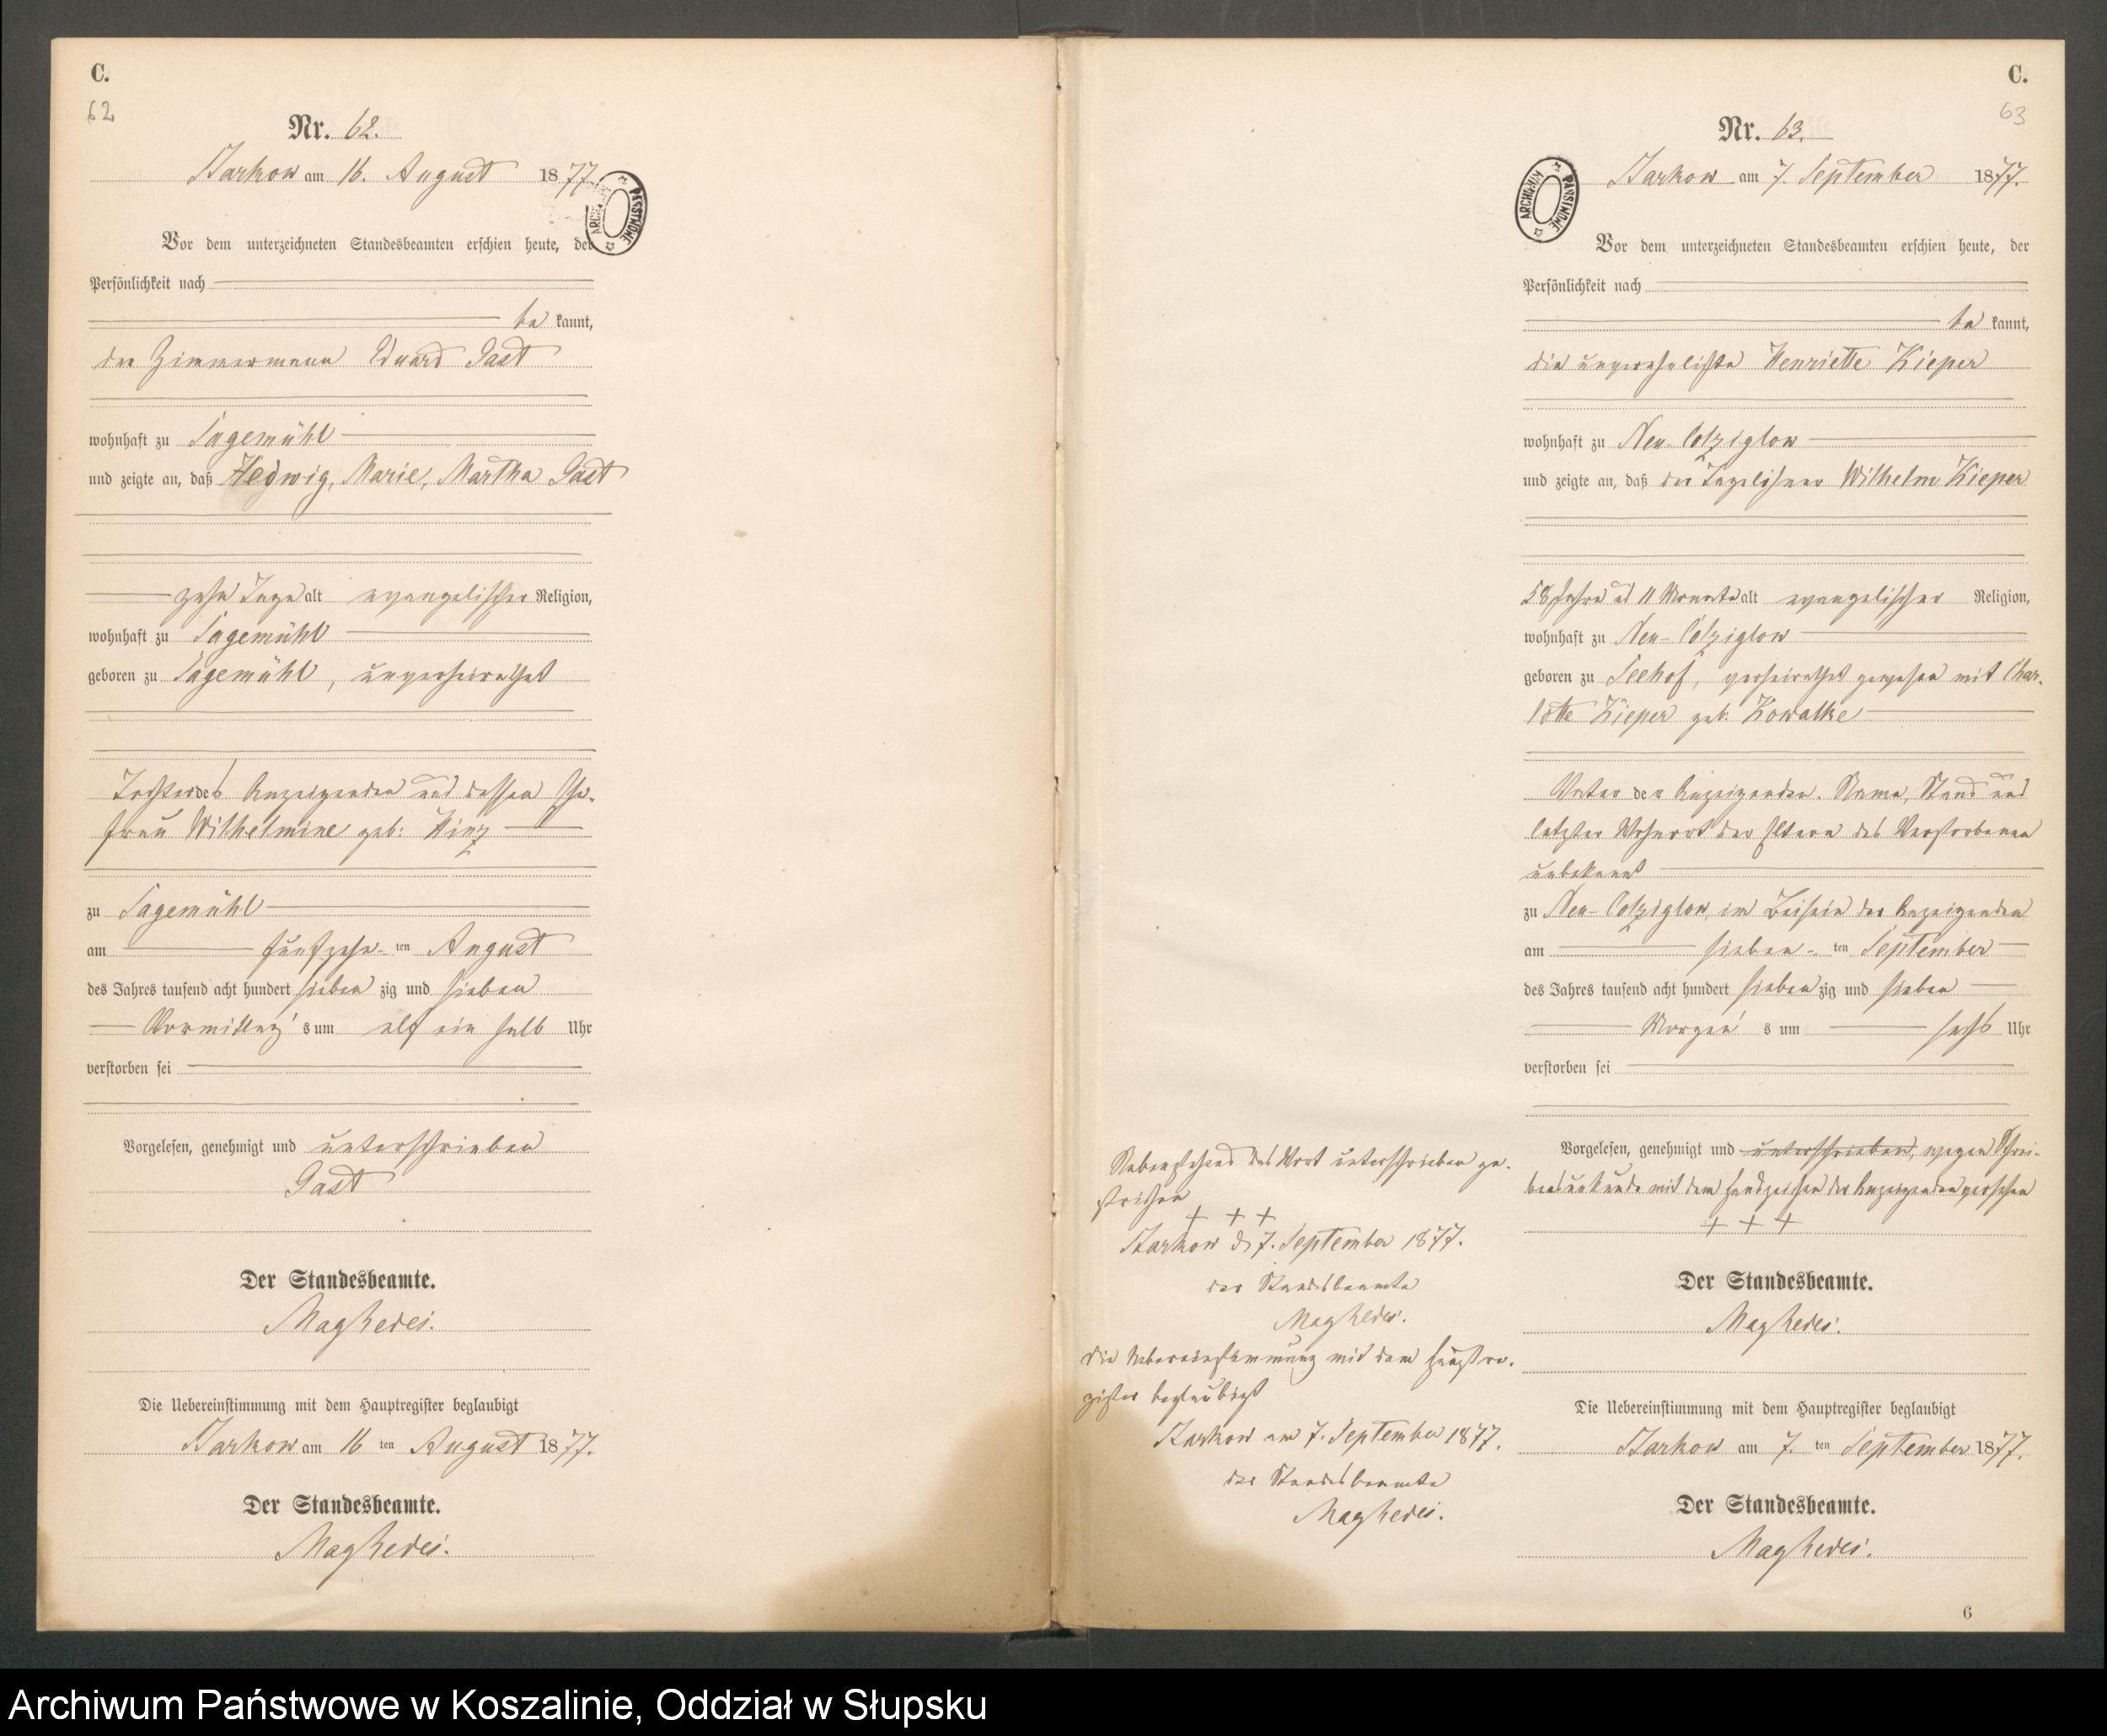 C.
62
Nr. 62.
Barkow am 16. August 1877.
ARCHIWUM PAŃSTWOWE
Vor dem unterzeichneten Standesbeamten erschien heute, der
Persönlichkeit nach
be kannt,
der Zimmermann Eduard Gast
wohnhaft zu Sagemühl
und zeigte an, daß Hedwig, Marie, Martha Gast
zehn Tage alt evangelischer Religion,
wohnhaft zu Sagemühl
geboren zu Sagemühl, unverheirathet
Tochter des Anzeigenden und dessen Ehe-
frau Wilhelmine geb: Hinz
zu Sagemühl
am fünfzehn- ten August
des Jahres tausend acht hundert sieben zig und sieben
Vormittag's um elf ein halb Uhr
verstorben sei
Vorgelesen, genehmigt und unterschrieben
Gast
Der Standesbeamte.
Die Uebereinstimmung mit dem Hauptregister beglaubigt
Barkow am 16 ten August 1877.
Der Standesbeamte.
C.
63
Nr. 63.
Barkow am 7. September 1877.
ARCHIWUM PAŃSTWOWE
Vor dem unterzeichneten Standesbeamten erschien heute, der
Persönlichkeit nach
be kannt,
die unverehelichte Henriette Kieper
wohnhaft zu Neu-Colziglow
und zeigte an, daß der Tagelöhner Wilhelm Kieper
58 Jahre und 11 Monate alt evangelischer Religion,
wohnhaft zu Neu-Colziglow
geboren zu Seehof, verheirathet gewesen mit Char-
lotte Kieper geb. Kowalke
Vater der Anzeigenden. Name, Stand und
letzter Wohnort der Eltern des Verstorbenen
unbekannt
zu Neu-Colziglow, im Beisein der Anzeigenden
am sieben- ten September
des Jahres tausend acht hundert sieben zig und sieben
Morgen's um sechs Uhr
verstorben sei
Vorgelesen, genehmigt und unterschrieben, wegen Schrei-
bensunkunde mit dem Handzeichen der Anzeigenden versehen
+ + +
Der Standesbeamte.
Die Uebereinstimmung mit dem Hauptregister beglaubigt
Barkow am 7. ten September 1877.
Der Standesbeamte.
6
Nebenstehend das Wort unterschrieben ge-
strichen
+ + +
Barkow d 7. September 1877.
der Standesbeamte
die Uebereinstimmung mit dem Hauptre-
gister beglaubigt
Barkow am 7. September 1877.
der Standesbeamte
Archiwum Państwowe w Koszalinie, Oddział w Słupsku